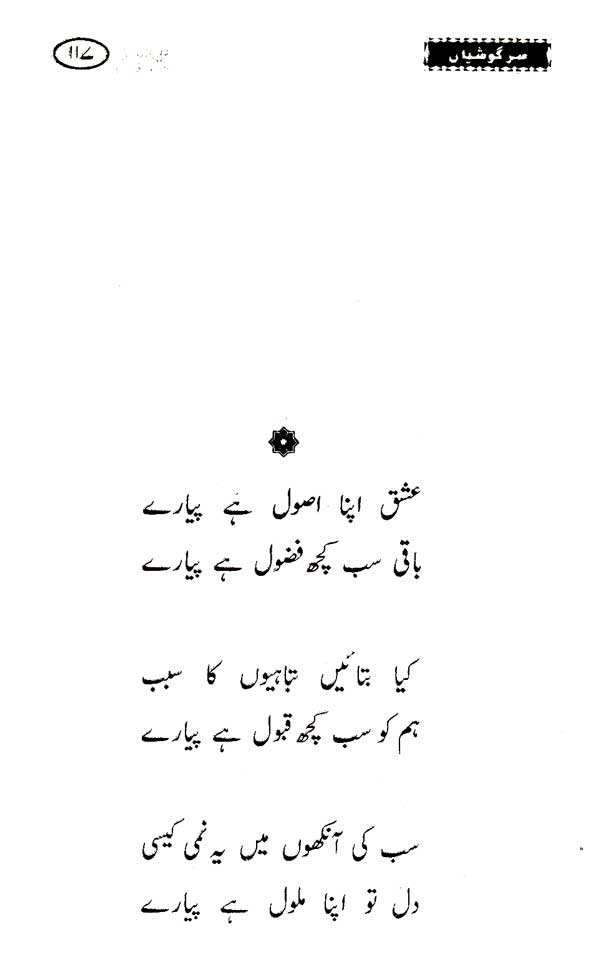 سرگوشیاں
۱۱۷
عشق اپنا اصول ہے پیارے
باقی سب کچھ فضول ہے پیارے
کیا بتائیں تباہیوں کا سبب
ہم کو سب کچھ قبول ہے پیارے
سب کی آنکھوں میں یہ نمی کیسی
دل تو اپنا ملول ہے پیارے